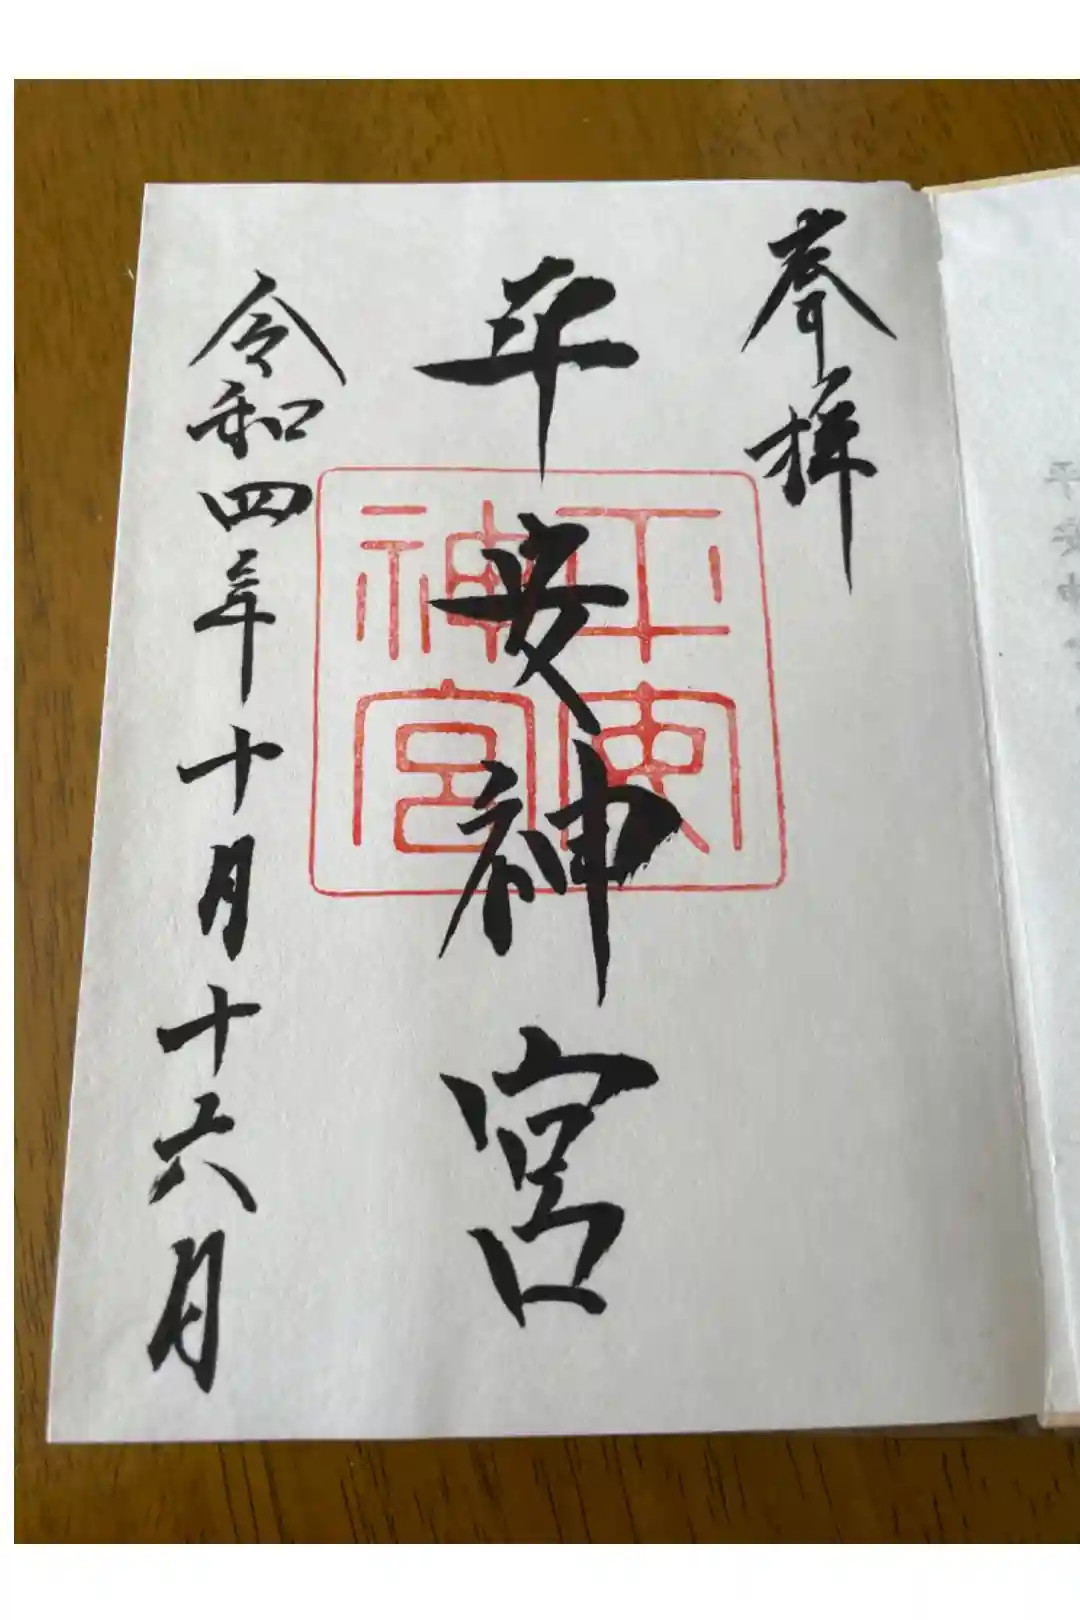 平安神
奉拝
平安神宮
平安
神宮
令和四年十月十六月